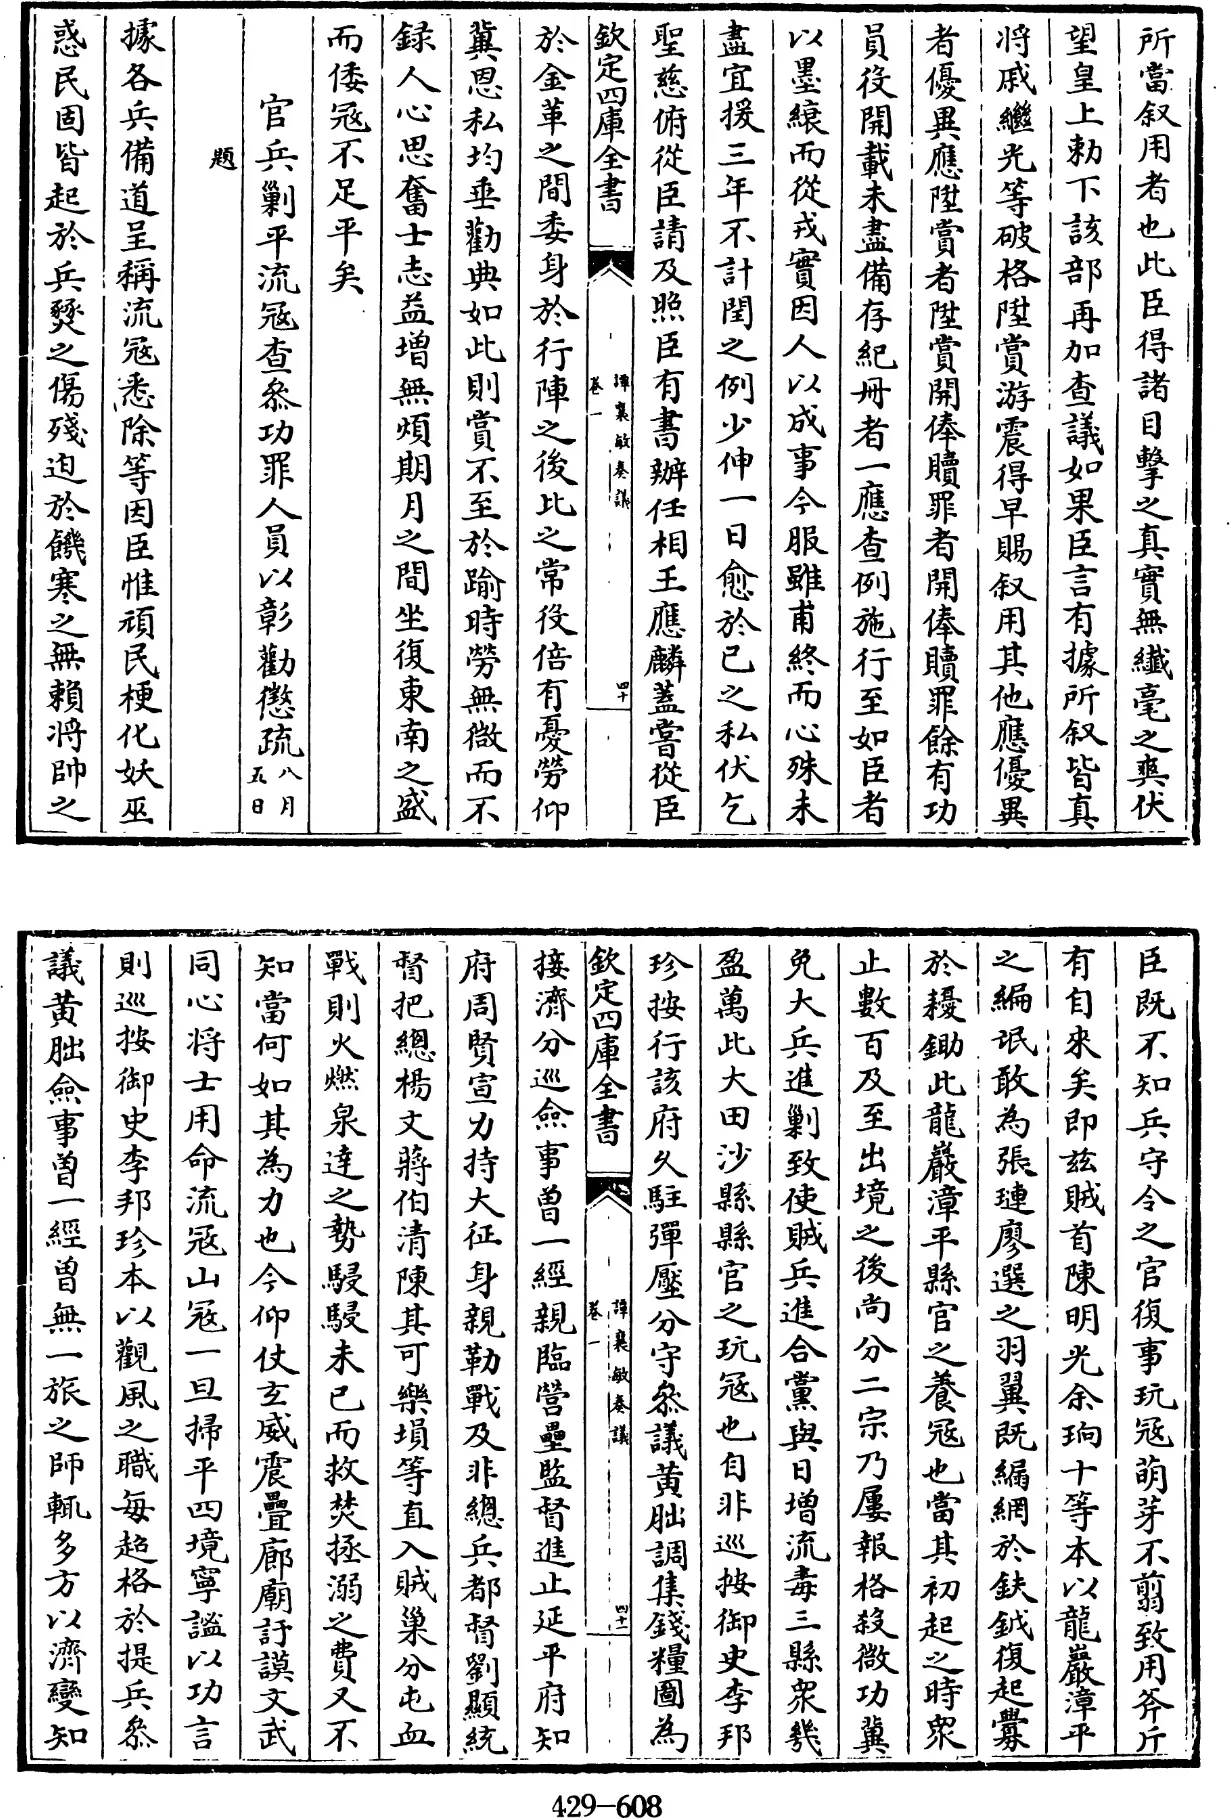 所當叙用者也此臣得諸目擊之真實無纎毫之爽伏
望皇上勅下該部再加查議如果臣言有據所叙皆真
將戚繼光等破格陞賞游震得早賜叙用其他應優異
者優異應陞賞者陞賞開俸贖罪者開俸贖罪餘有功
員役開載未盡備存紀冊者一應查例施行至如臣者
以墨縗而從戎實因人以成事今服雖甫終而心殊未
盡宜援三年不計閏之例少伸一日愈於已之私伏乞
聖慈俯從臣請及照臣有書辦任相王應麟蓋嘗從臣
欽定四庫全書
譚襄敏奏議
卷一
四十
於金革之間委身於行陣之後比之常役倍有憂勞仰
冀恩私均垂勸典如此則賞不至於踰時勞無微而不
録人心思奮士志益增無煩期月之間坐復東南之盛
而倭冦不足平矣
官兵剿平流冦查叅功罪人員以彰勸懲疏八月五日
題
據各兵備道呈稱流冦悉除等因臣惟頑民梗化妖巫
惑民固皆起於兵燹之傷殘迫於饑寒之無賴將帥之
臣既不知兵守令之官復事玩冦萌芽不翦致用斧斤
有自來矣即兹賊首陳明光余珦十等本以龍巖漳平
之編氓敢為張璉廖選之羽翼既漏網於鈇鉞復起釁
於耰鋤此龍巖漳平縣官之養冦也當其初起之時衆
止數百及至出境之後尚分二宗乃屢報格殺微功冀
免大兵進剿致使賊兵進合黨與日增流毒三縣衆幾
盈萬此大田沙縣縣官之玩冦也自非巡按御史李邦
珍按行該府久駐彈壓分守叅議黄朏調集錢糧圖為
欽定四庫全書
譚襄敏奏議
卷一
四十一
接濟分巡僉事曽一經親臨營壘監督進止延平府知
府周賢宣力持大征身親勒戰及非總兵都督劉顯統
督把總楊文蔣伯清陳其可樂塤等直入賊巢分屯血
戰則火燃泉達之勢駸駸未已而救焚拯溺之費又不
知當何如其為力也今仰仗玄威震疊廊廟訏謨文武
同心將士用命流冦山冦一旦掃平四境寧謐以功言
則巡按御史李邦珍本以觀風之職每超格於提兵叅
議黄朏僉事曽一經曽無一旅之師輒多方以濟變知
429-608